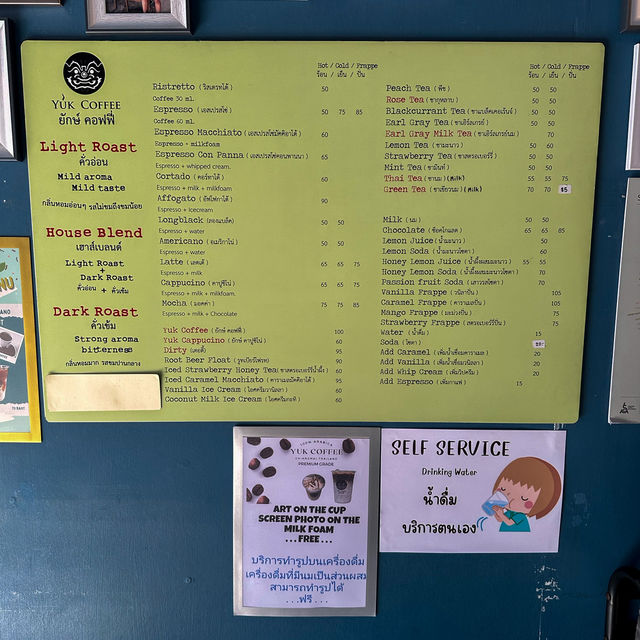 YUK COFFEE
ยักษ์ คอฟฟี่
Light Roast
คั่วอ่อน
Mild aroma
Mild taste
กลิ่นหอมอ่อนๆ รสไม่ขมถึงขมน้อย
House Blend
เฮาส์เบลนด์
Light Roast
+
Dark Roast
คั่วอ่อน + คั่วเข้ม
Dark Roast
คั่วเข้ม
Strong aroma
bitterness
กลิ่นหอมมาก รสขมปานกลาง
Hot / Cold / Frappe
ร้อน / เย็น / ปั่น
Ristretto ( ริสเตรทโต้ ) 50
Coffee 30 ml.
Espresso ( เอสเปรสโซ่ ) 50 75 85
Coffee 60 ml.
Espresso Macchiato ( เอสเปรสโซ่มัคคิอาโต้ ) 60
Espresso + milkfoam
Espresso Con Panna ( เอสเปรสโซ่คอนพานนา ) 65
Espresso + whipped cream.
Cortado ( คอร์ทาโด้ ) 60
Espresso + milk + milkfoam
Affogato ( อัฟโฟกาโต้ ) 90
Espresso + Icecream
Longblack ( ลองแบล็ค ) 50 50
Espresso + water
Americano ( อเมริกาโน่ ) 50 50
Espresso + water
Latte ( ลาเต้ ) 65 65 75
Espresso + milk
Cappucino ( คาปูชิโน่ ) 65 65 75
Espresso + milk + milkfoam.
Mocha ( มอคค่า ) 75 75 85
Espresso + milk + Chocolate
Yuk Coffee ( ยักษ์ คอฟฟี่ ) 100
Yuk Cappucino ( ยักษ์ คาปูชิโน่ ) 60
Dirty ( เดอตี้ ) 95
Root Beer Float ( รูทเบียร์โฟลท ) 90
Iced Strawberry Honey Tea 60
Iced Caramel Macchiato ( คาราเมลมัคคิอาโต้ ) 95
Vanilla Ice Cream ( ไอศครีมวานิลลา ) 60
Coconut Milk Ice Cream ( ไอศครีมกะทิ ) 60
Hot / Cold / Frappe
ร้อน / เย็น / ปั่น
Peach Tea ( พีช ) 50 50
Rose Tea ( ชากุหลาบ ) 50 50
Blackcurrant Tea ( ชาแบล็คเคอร์แร้นท์ ) 50 50
Earl Gray Tea ( ชาเอิร์ลเกรย์ ) 50 50
Earl Gray Milk Tea ( ชาเอิร์ลเกรย์นม ) 70
Lemon Tea ( ชามะนาว ) 50 60
Strawberry Tea ( ชาสตรอเบอร์รี่ ) 50 50
Mint Tea ( ชามิ้นท์ ) 50 50
Thai Tea ( ชานม ) (Milk) 55 55 75
Green Tea ( ชาเขียวนม ) (Milk) 70 70 85
Milk ( นม ) 50 50
Chocolate ( ช็อคโกแลต ) 65 65 65
Lemon Juice ( น้ำมะนาว ) 50
Lemon Soda ( น้ำมะนาวโซดา ) 60
Honey Lemon Juice ( น้ำผึ้งผสมมะนาว ) 55 55
Honey Lemon Soda ( น้ำผึ้งผสมมะนาวโซดา ) 70
Passion fruit Soda ( เสาวรสโซดา ) 70
Vanilla Frappe ( วนิลาปั่น ) 105
Caramel Frappe ( คาราเมลปั่น ) 105
Mango Frappe ( มะม่วงปั่น ) 75
Strawberry Frappe ( สตรอเบอร์รี่ปั่น ) 75
Water ( น้ำดื่ม ) 15
Soda ( โซดา )
Add Caramel ( เพิ่มน้ำเชื่อมคาราเมล ) 20
Add Vanilla ( เพิ่มน้ำเชื่อมวนิลา ) 20
Add Whip Cream ( เพิ่มวิปครีม ) 20
Add Espresso ( เพิ่มกาแฟ ) 15
100% ARABICA
YUK COFFEE
CHIANGMAI THAILAND
PREMIUM GRADE
ART ON THE CUP
SCREEN PHOTO ON THE
MILK FOAM
...FREE...
บริการทำรูปบนเครื่องดื่ม
เครื่องดื่มที่มีนมเป็นส่วนผสม
สามารถทำรูปได้
...ฟรี...
SELF SERVICE
Drinking Water
น้ำดื่ม
บริการตนเอง